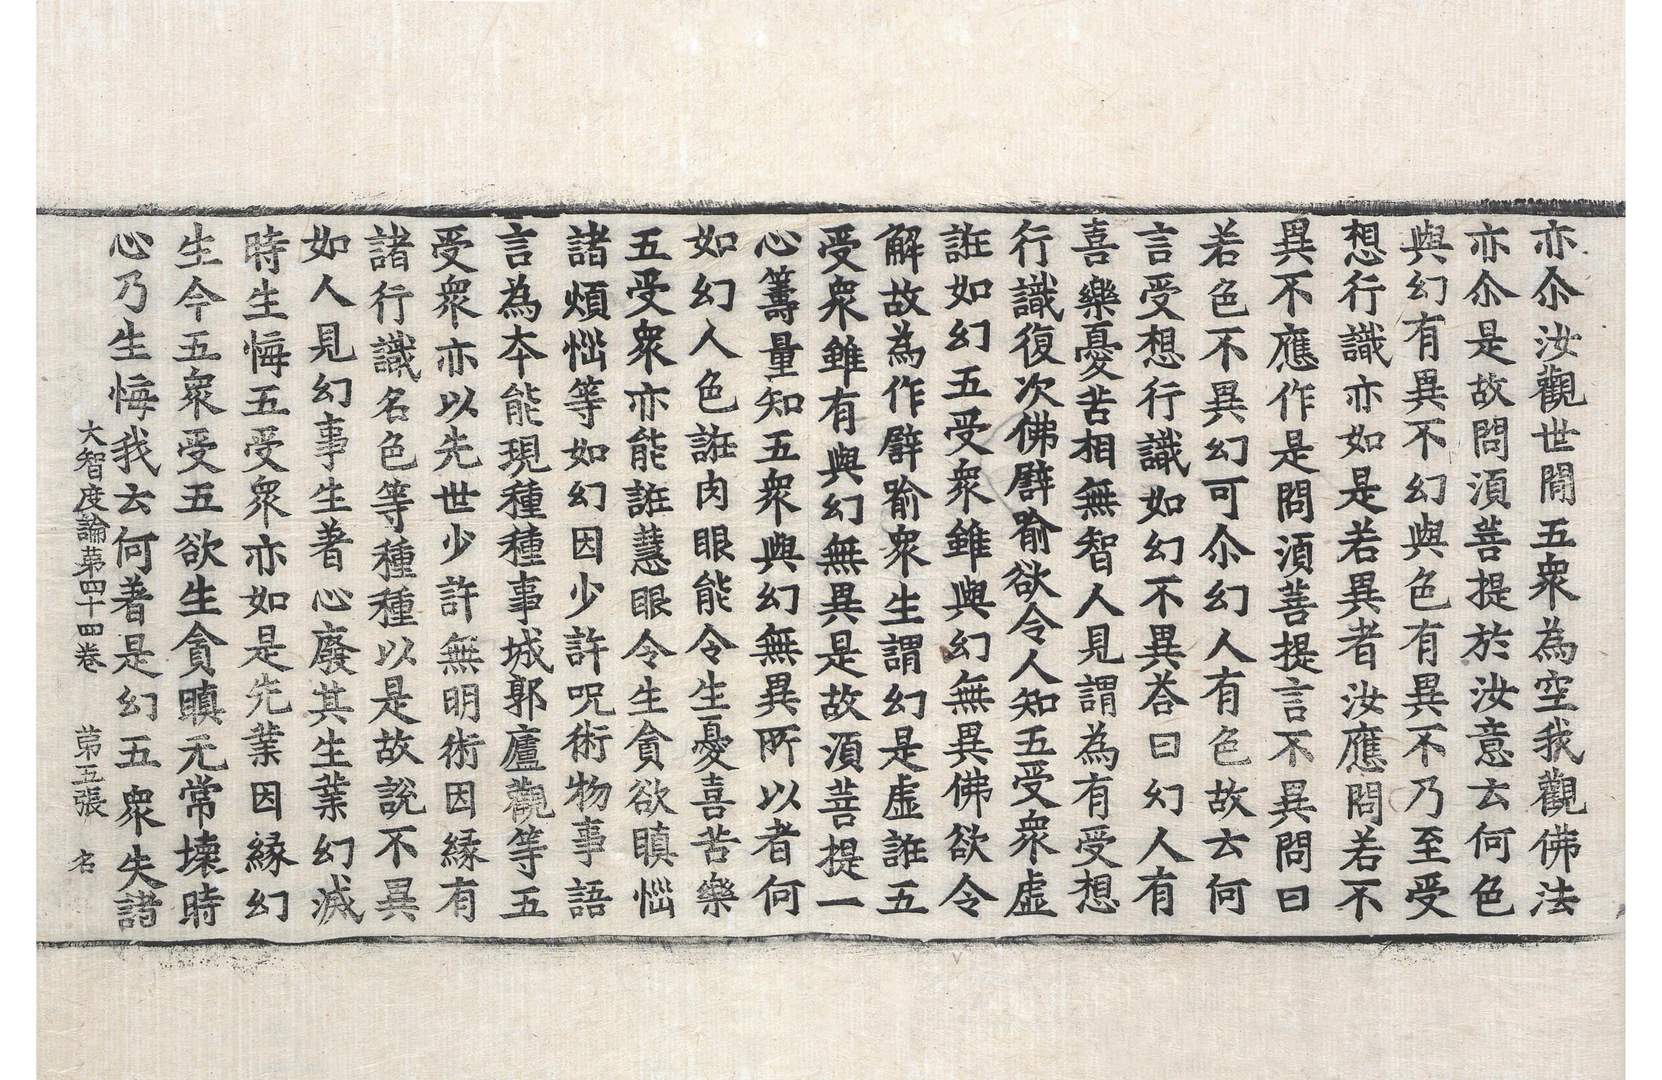 亦尒汝觀世閒五衆為空我觀佛法
亦尒是故問湏菩提於汝意云何色
與幻有異不幻與色有異不乃至受
想行識亦如是若異者汝應問若不
異不應作是問湏菩提言不異問曰
若色不異幻可尒幻人有色故云何
言受想行識如幻不異荅曰幻人有
喜樂憂苦相無智人見謂為有受想
行識復次佛譬喻欲令人知五受衆虛
誑如幻五受衆雖與幻無異佛欲令
解故為作譬喻衆生謂幻是虛誑五
受衆雖有與幻無異是故湏菩提一
心籌量知五衆與幻無異所以者何
如幻人色誑肉眼能令生憂喜苦樂
五受衆亦能誑慧眼令生貪欲瞋惱
諸煩惱等如幻因少許呪術物事語
言為本能現種種事城郭廬觀等五
受衆亦以先世少許無明術因緣有
諸行識名色等種種以是故說不異
如人見幻事生著心廢其生業幻滅
時生悔五受衆亦如是先業因緣幻
生今五衆受五欲生貪瞋无常壞時
心乃生悔我云何著是幻五衆失諸
大智度論第四十四卷 第五張 名